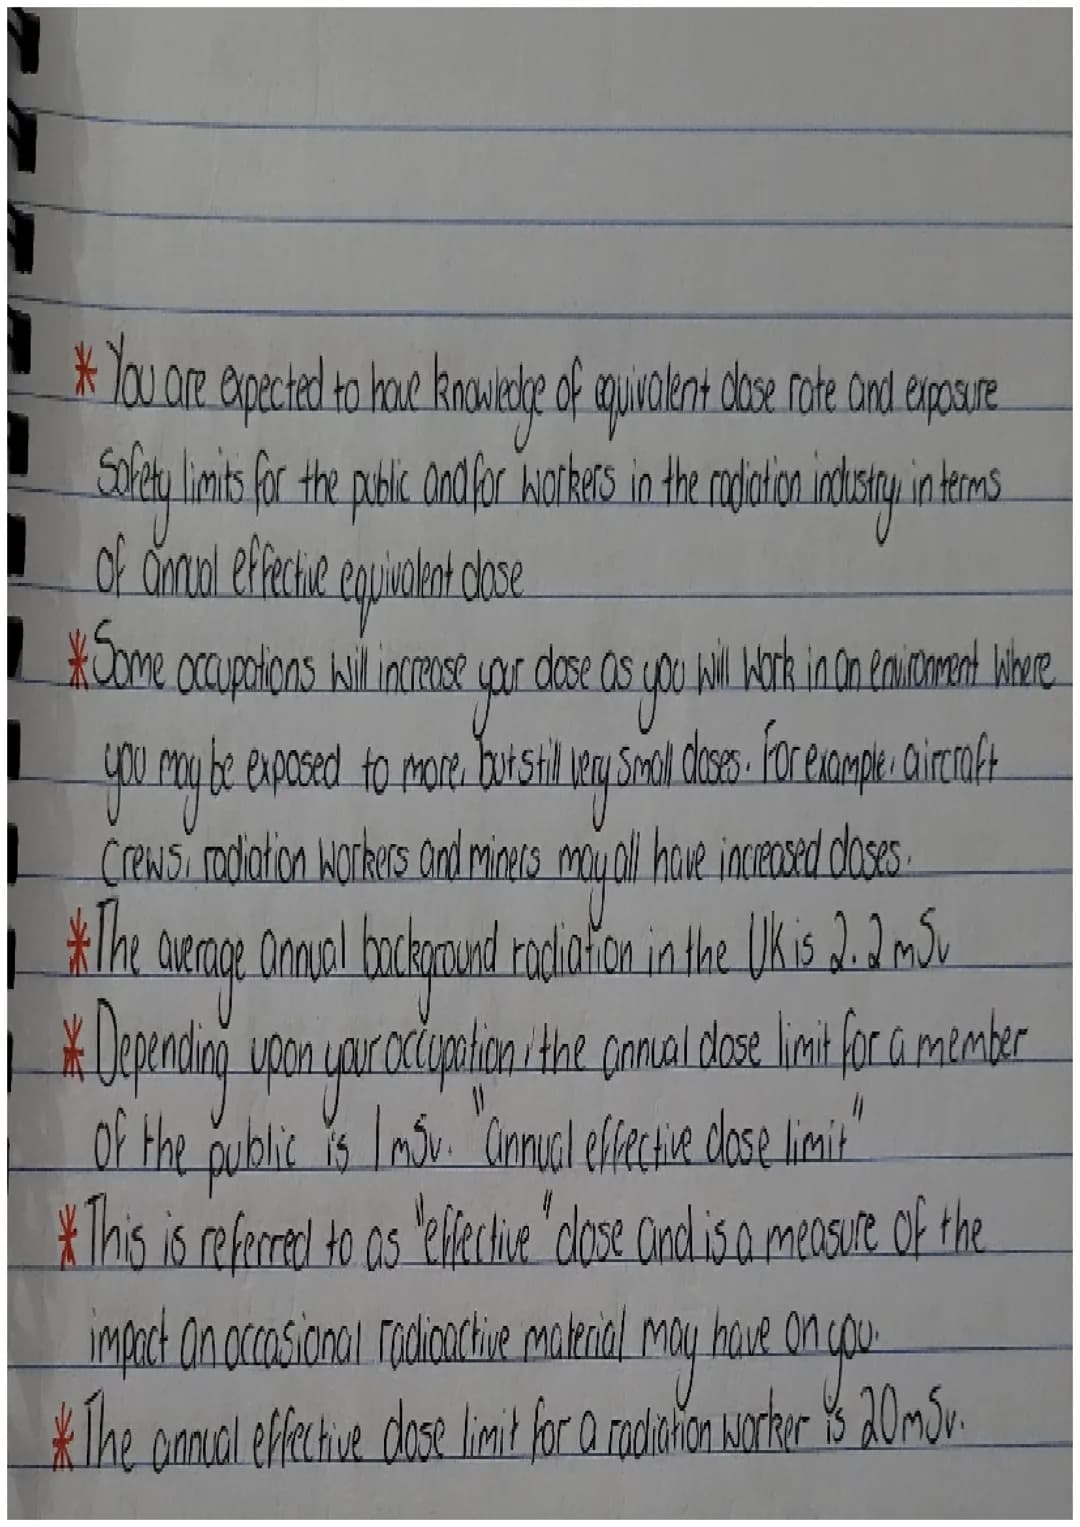 * You are expected to have knowledge of equivalent dose rate and exposure
safety limits for the public and for workers in the radiation industry, in terms
of annual effective equivalent dose
* Some occupations will increase your dose as you will work in an environment where
you may be exposed to more, but still very small doses. For example, aircraft
crews, radiation workers and miners may all have increased doses.
* The average annual background radiation in the UK is 2.2 mSv
* Depending upon your occupation, the annual dose limit for a member
of the public is 1 mSv. "annual effective dose limit"
* This is referred to as "effective" dose and is a measure of the
impact an occasional radioactive material may have on you.
* The annual effective dose limit for a radiation worker is 20mSv.